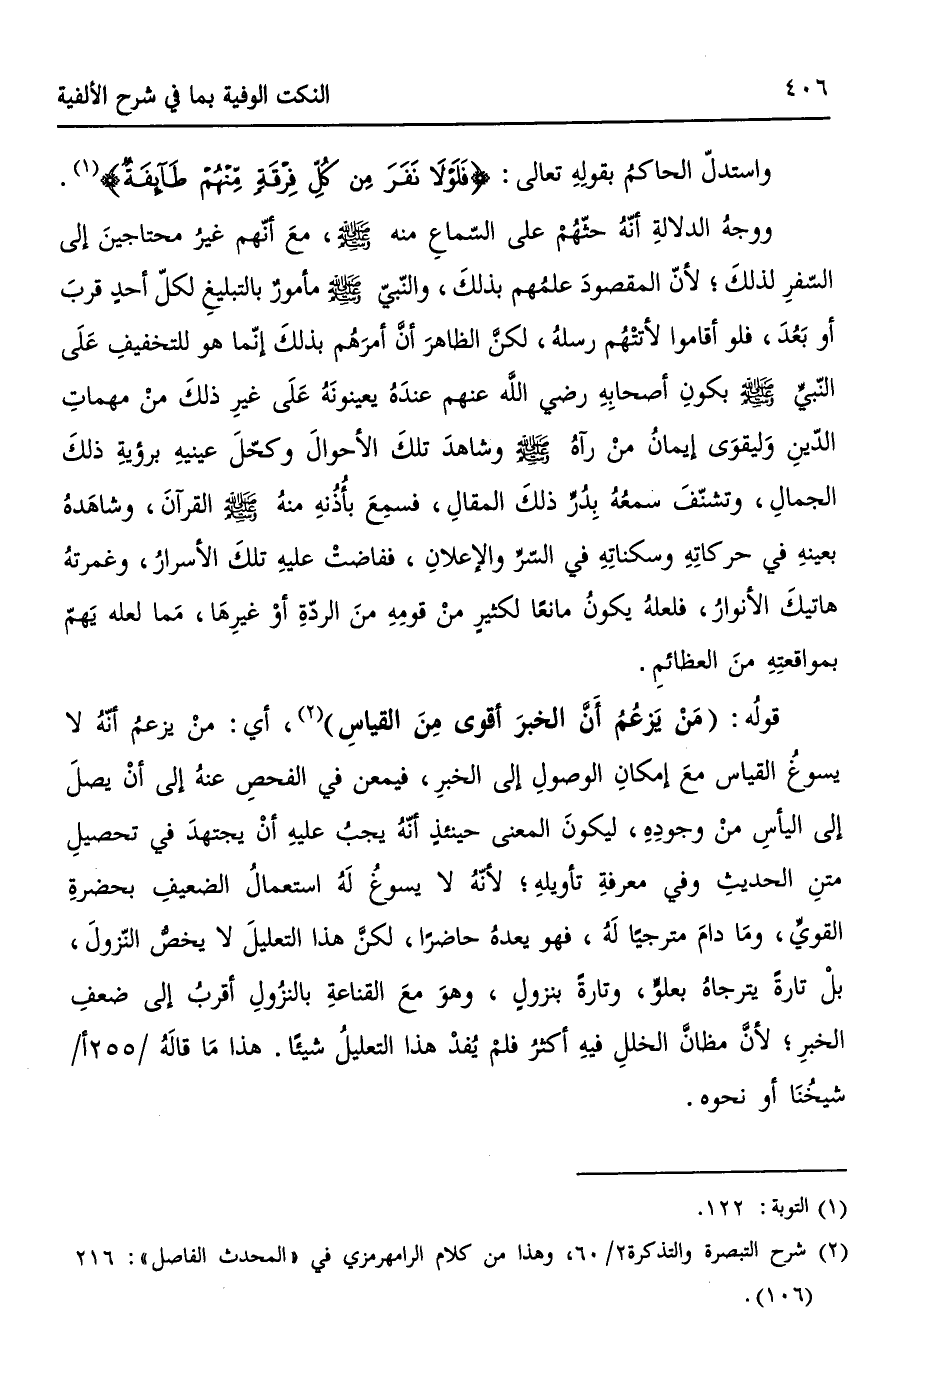 ٤٠٦ النكت الوفية بما في شرح الألفية
واستدلّ الحاكمُ بقولِهِ تعالى : ﴿فَلَوْلَا نَفَرَ مِن كُلِّ فِرْقَةٍ مِّنْهُمْ طَآئِفَةٌ﴾(١) .
ووجهُ الدلالةِ أنّهُ حثّهُمْ على السّماعِ منه ﷺ ، معَ أنّهم غيرُ محتاجينَ إلى
السّفرِ لذلكَ ؛ لأنّ المقصودَ علمُهم بذلكَ ، والنّبيّ ﷺ مأمورٌ بالتبليغِ لكلّ أحدٍ قربَ
أو بَعُدَ ، فلو أقاموا لأتتْهُم رسلهُ ، لكنَّ الظاهرَ أنَّ أمرَهُم بذلكَ إنّما هو للتخفيفِ عَلَى
النّبيِّ ﷺ بكونِ أصحابِهِ رضي اللَّه عنهم عندَهُ يعينونَهُ عَلَى غيرِ ذلكَ منْ مهماتِ
الدّينِ وَليقوَى إيمانُ منْ رآهُ ﷺ وشاهدَ تلكَ الأحوالَ وكحّلَ عينيهِ برؤيةِ ذلكَ
الجمالِ ، وتشنّفَ سمعُهُ بِدُرِّ ذلكَ المقال ، فسمِعَ بأُذُنهِ منهُ ﷺ القرآنَ ، وشاهَدهُ
بعينهِ في حركاتِهِ وسكناتِهِ في السّرِّ والإعلانِ ، ففاضتْ عليهِ تلكَ الأسرارُ ، وغمرتهُ
هاتيكَ الأنوارُ ، فلعلهُ يكونُ مانعًا لكثيرٍ منْ قومِهِ منَ الردّةِ أوْ غيرِهَا ، مَما لعله يَهمّ
بمواقعتِهِ منَ العظائمِ .
قولُه : (مَنْ يَزعُمُ أَنَّ الخبرَ أقوى مِنَ القياسِ)(٢) ، أي : منْ يزعمُ أنّهُ لا
يسوغُ القياس معَ إمكانِ الوصولِ إلى الخبرِ ، فيمعن في الفحصِ عنهُ إلى أنْ يصلَ
إلى اليأسِ منْ وجودِهِ ، ليكونَ المعنى حينئذٍ أنّهُ يجبُ عليهِ أنْ يجتهدَ في تحصيلِ
متنِ الحديثِ وفي معرفةِ تأويلهِ ؛ لأنّهُ لا يسوغُ لَهُ استعمالُ الضعيفِ بحضرةِ
القويِّ ، ومَا دامَ مترجيًا لَهُ ، فهو يعدهُ حاضرًا ، لكنَّ هذا التعليلَ لا يخصُّ النّزولَ ،
بلْ تارةً يترجاهُ بعلوٍّ ، وتارةً بنزولٍ ، وهوَ معَ القناعةِ بالنزُولِ أقربُ إلى ضعفِ
الخبرِ ؛ لأنَّ مظانَّ الخللِ فيهِ أكثرُ فلمْ يُفدْ هذا التعليلُ شيئًا . هذا مَا قالَهُ /٢٥٥أ/
شيخُنَا أو نحوه .
(١) التوبة : ١٢٢.
(٢) شرح التبصرة والتذكرة٢/ ٦٠، وهذا من كلام الرامهرمزي في «المحدث الفاصل» : ٢١٦
(١٠٦).